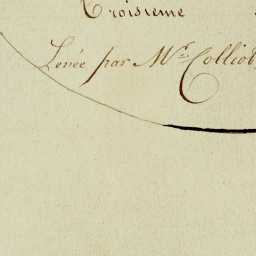 Troisieme
Levée par Mr. Colliot